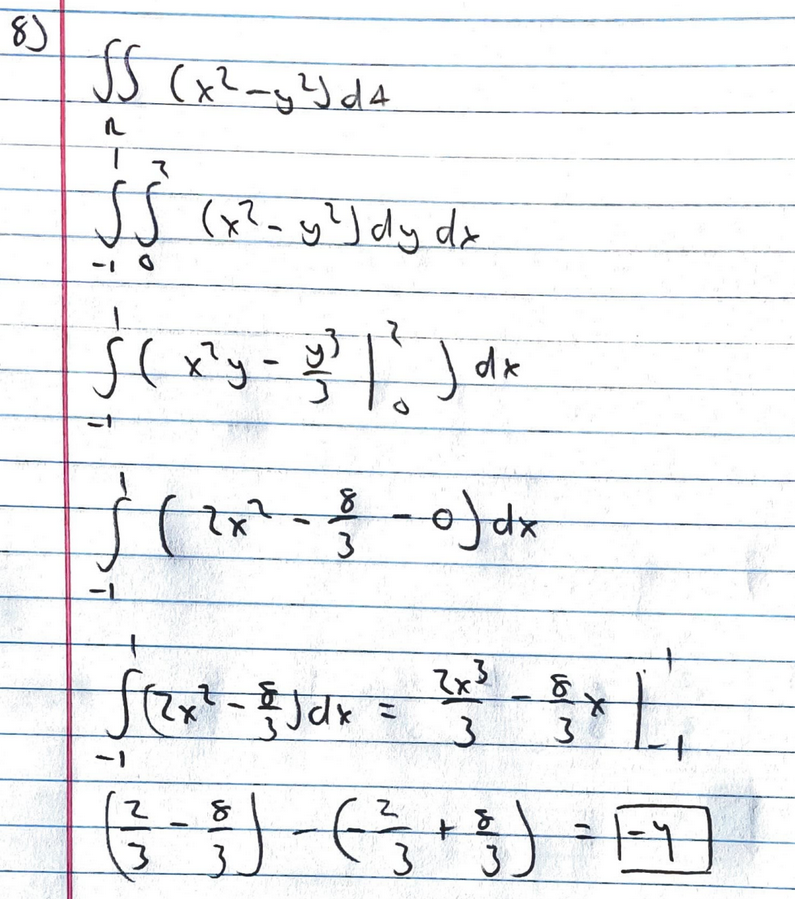 8)
∬_R (x² - y²) dA
∫_{-1}^{1} ∫_{0}^{2} (x² - y²) dy dx
∫_{-1}^{1} ( x²y - y³/3 |_{0}^{2} ) dx
∫_{-1}^{1} ( 2x² - 8/3 - 0 ) dx
∫_{-1}^{1} (2x² - 8/3) dx = 2x³/3 - 8/3 x |_{-1}^{1}
(2/3 - 8/3) - (-2/3 + 8/3) = -4